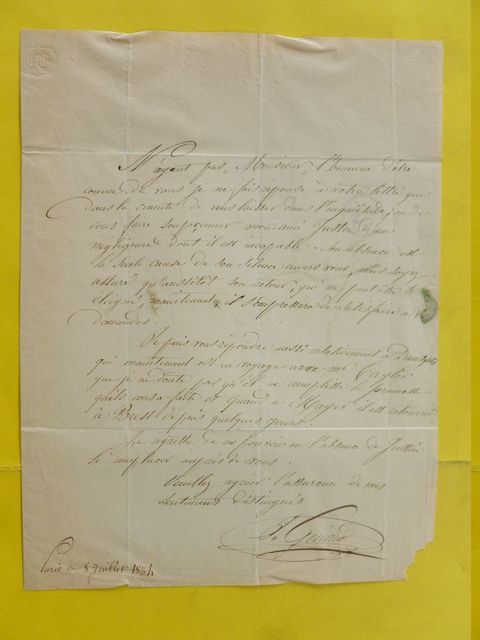 N'ayant pas, Monsieur, l'honneur d'être
connu de vous je ne fais réponse à votre lettre que
dans la crainte de vous laisser dans l'inquiétude, ou de
vous faire soupçonner mon ami Justin d'une
négligence dont il est incapable. Son absence est
la seule cause de son silence envers vous, mais soyez
assuré qu'aussitôt son retour, qui ne peut être
éloigné, maintenant, il s'empressera de satisfaire à vos
demandes.
Je puis vous répondre aussi relativement à
qui maintenant est en voyage avec mr
que je ne doute pas qu'il ne remplisse la promesse
qu'ils vous a faite et quand à Mayer il est retourné
à Brest depuis quelques jours.
Je regrette de ne pouvoir en l'absence de Justin
le remplacer auprès de vous.
Veuillez agréer l'assurance de mes
sentiments distingués
Paris ce 8 Juillet